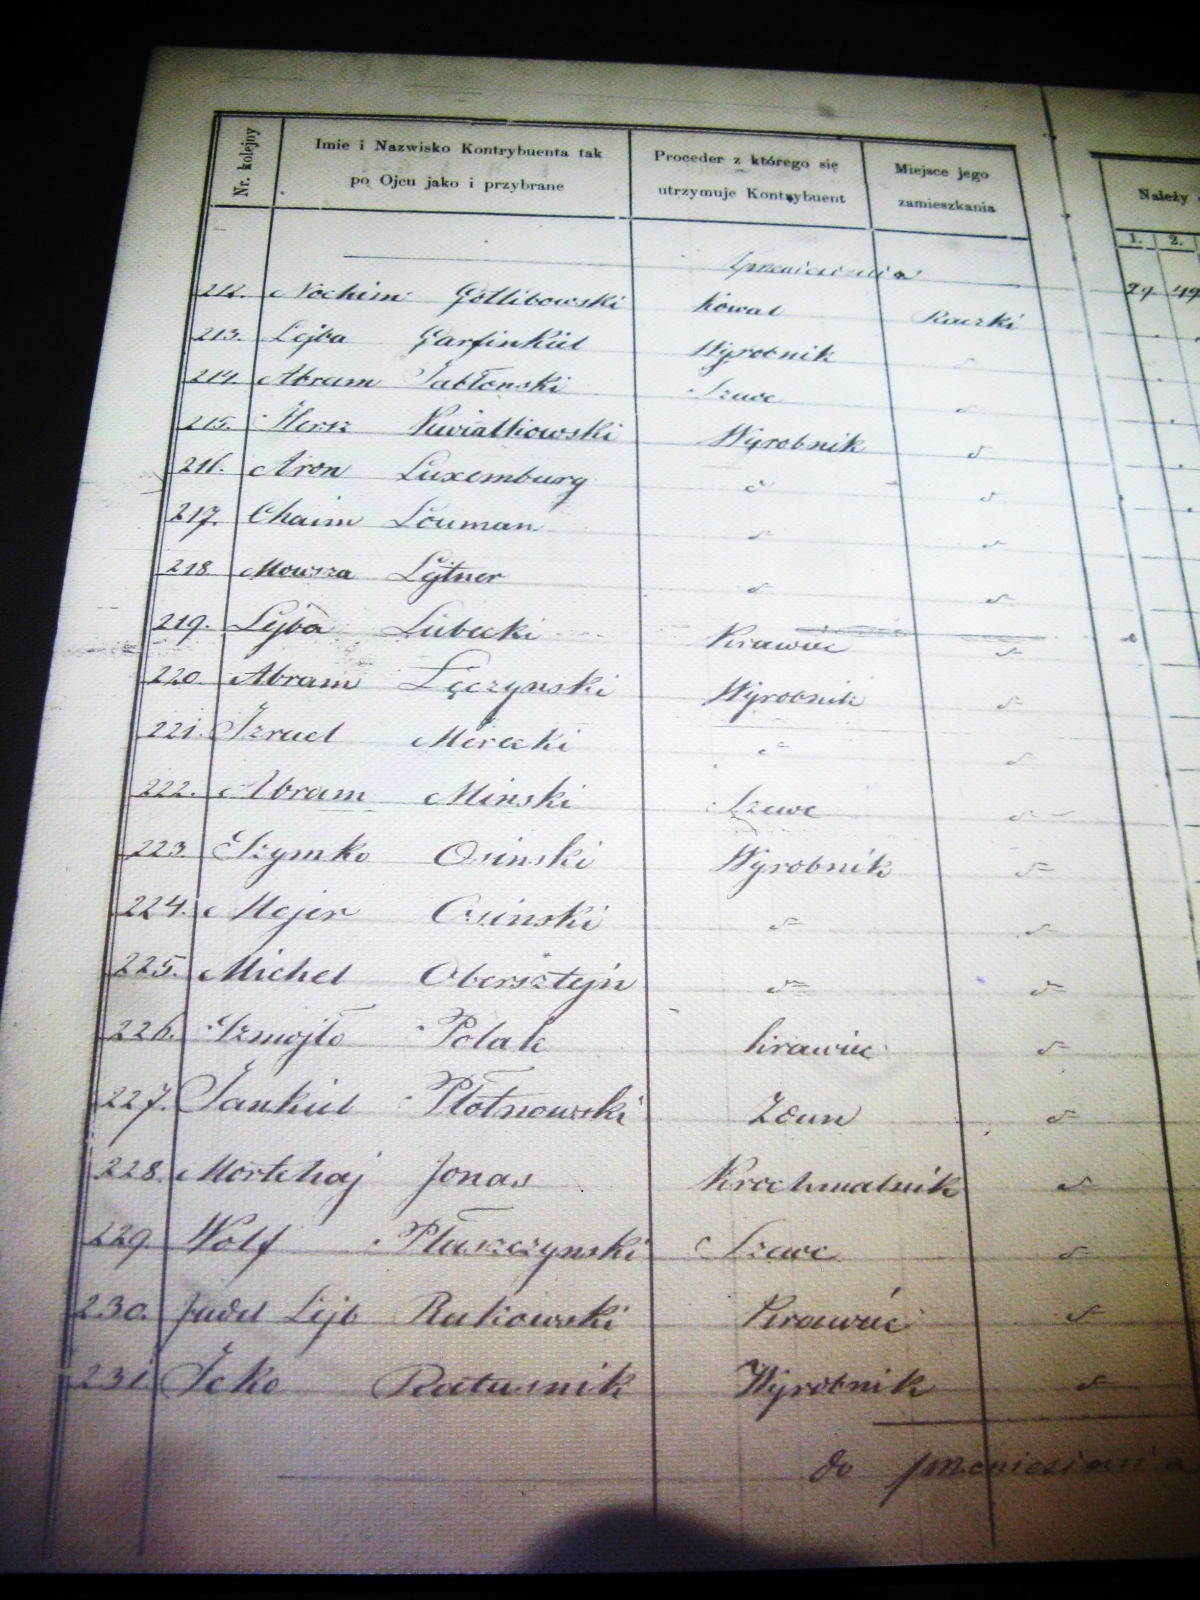 Nr. kolejny
Imie i Nazwisko Kontrybuenta tak
po Ojcu jako i przybrane
Proceder z którego się
utrzymuje Kontrybuent
Miejsce jego
zamieszkania
Należy
1. 2.
29 49
212. Nochim Gotlibowski Kowal Raczki
213. Lejba Garfinkiel Wyrobnik
214. Abram Jabłonski Szewc
215. Hersz Kwiatkowski Wyrobnik
216. Aron Luxemburg
217. Chaim Louman
218 Mowsza Lejtner
219. Lejba Lubecki Krawiec
220. Abram Łęczynski Wyrobnik
221. Izrael Merecki
222. Abram Minski Szewc
223. Szymko Osinski Wyrobnik
224. Mejer Osinski
225. Michel Obersztejn
226. Szmojło Polak Krawiec
227. Jankiel Płotnowski Zdun
228. Mortchaj Jonas Krochmalnik
229. Wolf Płaszczynski Szewc
230. Judel Lejb Rakowski Krawiec
231. Icko Ratusnik Wyrobnik
do przeniesienia